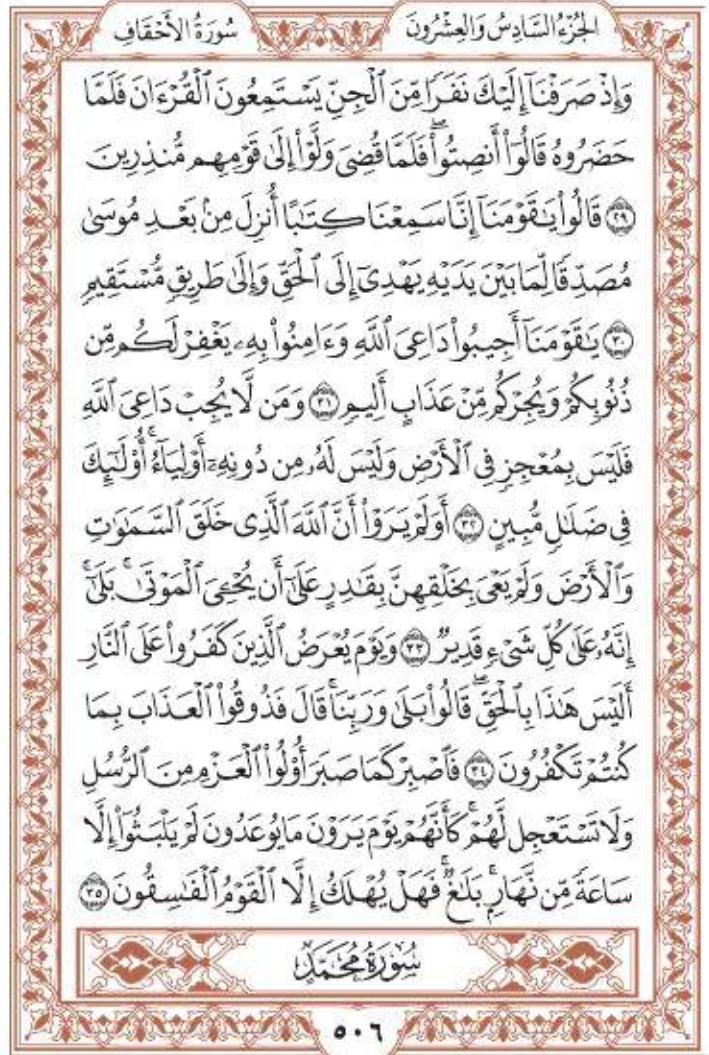 الجُزْءُ السَّادِسُ وَالعِشْرُونَ
سُورَةُ الأَحْقَافِ
وَإِذْ صَرَفْنَآ إِلَيْكَ نَفَرٗا مِّنَ ٱلْجِنِّ يَسْتَمِعُونَ ٱلْقُرْءَانَ فَلَمَّا
حَضَرُوهُ قَالُوٓاْ أَنصِتُواْۖ فَلَمَّا قُضِيَ وَلَّوْاْ إِلَىٰ قَوْمِهِم مُّنذِرِينَ
٢٩ قَالُواْ يَٰقَوْمَنَآ إِنَّا سَمِعْنَا كِتَٰبًا أُنزِلَ مِنۢ بَعْدِ مُوسَىٰ
مُصَدِّقٗا لِّمَا بَيْنَ يَدَيْهِ يَهْدِيٓ إِلَى ٱلْحَقِّ وَإِلَىٰ طَرِيقٖ مُّسْتَقِيمٖ
٣٠ يَٰقَوْمَنَآ أَجِيبُواْ دَاعِيَ ٱللَّهِ وَءَامِنُواْ بِهِۦ يَغْفِرْ لَكُم مِّن
ذُنُوبِكُمْ وَيُجِرْكُم مِّنْ عَذَابٍ أَلِيمٖ ٣١ وَمَن لَّا يُجِبْ دَاعِيَ ٱللَّهِ
فَلَيْسَ بِمُعْجِزٖ فِي ٱلْأَرْضِ وَلَيْسَ لَهُۥ مِن دُونِهِۦٓ أَوْلِيَآءُۚ أُوْلَٰٓئِكَ
فِي ضَلَٰلٖ مُّبِينٍ ٣٢ أَوَلَمْ يَرَوْاْ أَنَّ ٱللَّهَ ٱلَّذِي خَلَقَ ٱلسَّمَٰوَٰتِ
وَٱلْأَرْضَ وَلَمْ يَعْيَ بِخَلْقِهِنَّ بِقَٰدِرٍ عَلَىٰٓ أَن يُحْـِۧيَ ٱلْمَوْتَىٰۚ بَلَىٰٓ
إِنَّهُۥ عَلَىٰ كُلِّ شَيْءٖ قَدِيرٞ ٣٣ وَيَوْمَ يُعْرَضُ ٱلَّذِينَ كَفَرُواْ عَلَى ٱلنَّارِ
أَلَيْسَ هَٰذَا بِٱلْحَقِّۖ قَالُواْ بَلَىٰ وَرَبِّنَاۚ قَالَ فَذُوقُواْ ٱلْعَذَابَ بِمَا
كُنتُمْ تَكْفُرُونَ ٣٤ فَٱصْبِرْ كَمَا صَبَرَ أُوْلُواْ ٱلْعَزْمِ مِنَ ٱلرُّسُلِ
وَلَا تَسْتَعْجِل لَّهُمْۚ كَأَنَّهُمْ يَوْمَ يَرَوْنَ مَا يُوعَدُونَ لَمْ يَلْبَثُوٓاْ إِلَّا
سَاعَةٗ مِّن نَّهَارِۭۚ بَلَٰغٞۚ فَهَلْ يُهْلَكُ إِلَّا ٱلْقَوْمُ ٱلْفَٰسِقُونَ ٣٥
سُورَةُ مُحَمَّدٍ
٥٠٦